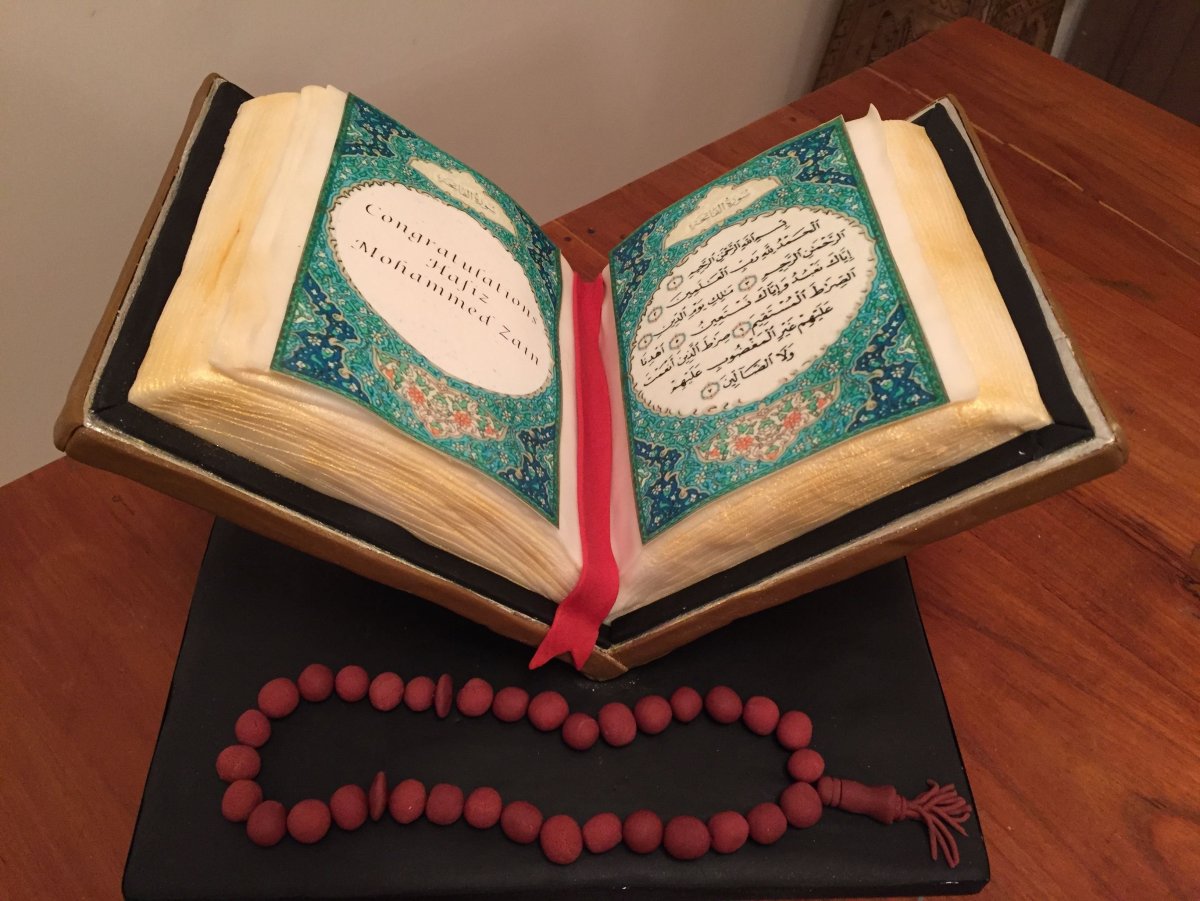 سُورَةُ الفَاتِحَة
Congratulations
Hafiz
Mohammed Zain
سُورَةُ الفَاتِحَة
بِسْمِ ٱللَّهِ ٱلرَّحْمَٰنِ ٱلرَّحِيمِ ١
ٱلْحَمْدُ لِلَّهِ رَبِّ ٱلْعَٰلَمِينَ ٢
ٱلرَّحْمَٰنِ ٱلرَّحِيمِ ٣ مَٰلِكِ يَوْمِ ٱلدِّينِ ٤
إِيَّاكَ نَعْبُدُ وَإِيَّاكَ نَسْتَعِينُ ٥ ٱهْدِنَا
ٱلصِّرَٰطَ ٱلْمُسْتَقِيمَ ٦ صِرَٰطَ ٱلَّذِينَ أَنْعَمْتَ
عَلَيْهِمْ غَيْرِ ٱلْمَغْضُوبِ عَلَيْهِمْ
وَلَا ٱلضَّآلِّينَ ٧